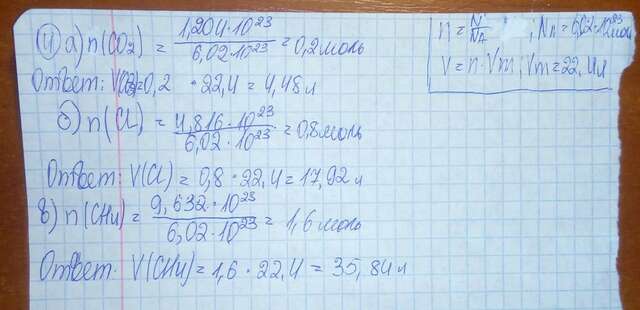 ④ а) n(CO₂) = 1,204·10²³ / 6,02·10²³ = 0,2 моль
Ответ: V(CO₂)=0,2 · 22,4 = 4,48 л
б) n(Cl) = 4,816·10²³ / 6,02·10²³ = 0,8 моль
Ответ: V(Cl) = 0,8 · 22,4 = 17,92 л
в) n(CH₄) = 9,632·10²³ / 6,02·10²³ = 1,6 моль
Ответ. V(CH₄) = 1,6 · 22,4 = 35,84 л
n = N/Nₐ ; Nₐ = 6,02·10²³ моль
V = n · Vm ; Vm = 22,4 л